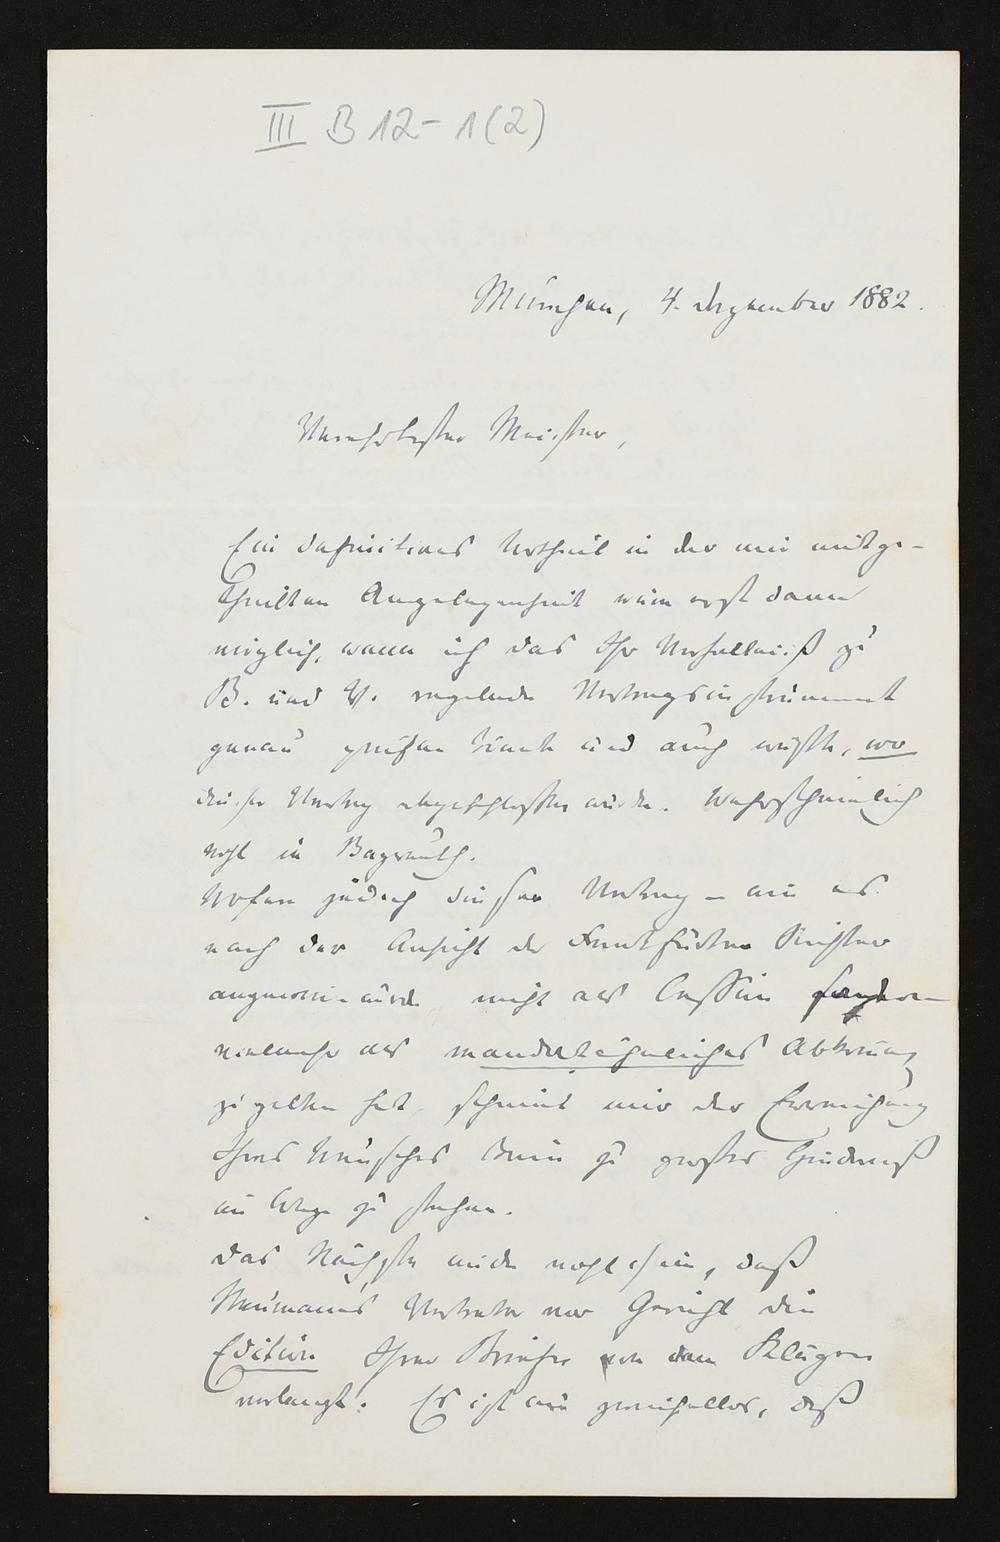 III B 12-1(2)
München, 4. Dezember 1882.
Verehrtester Meister,
Ein definitives Urtheil in der mir mitge-
theilten Angelegenheit wäre erst dann
möglich, wenn ich das Ihr Verhältniß zu
B. und V. regelnde Vertragsinstrument
genau prüfen könnte und auch wüßte, wo
dieser Vertrag abgeschlossen wurde. Wahrscheinlich
wohl in Bayreuth.
Wofern jedoch dieser Vertrag – wie es
nach der Ansicht der Frankfurter Richter
angenommen wird nicht als Cession sondern
vielmehr als mandatähnliches Abkommen
zu gelten hat, scheint mir der Erreichung
Ihres Wunsches kein zu großes Hinderniß
im Wege zu stehen.
Das Nächste würde wohl sein, daß
Neumann's Vertreter vor Gericht die
Edition Ihrer Briefe von dem Kläger
verlangt. Es ist mir zweifellos, daß